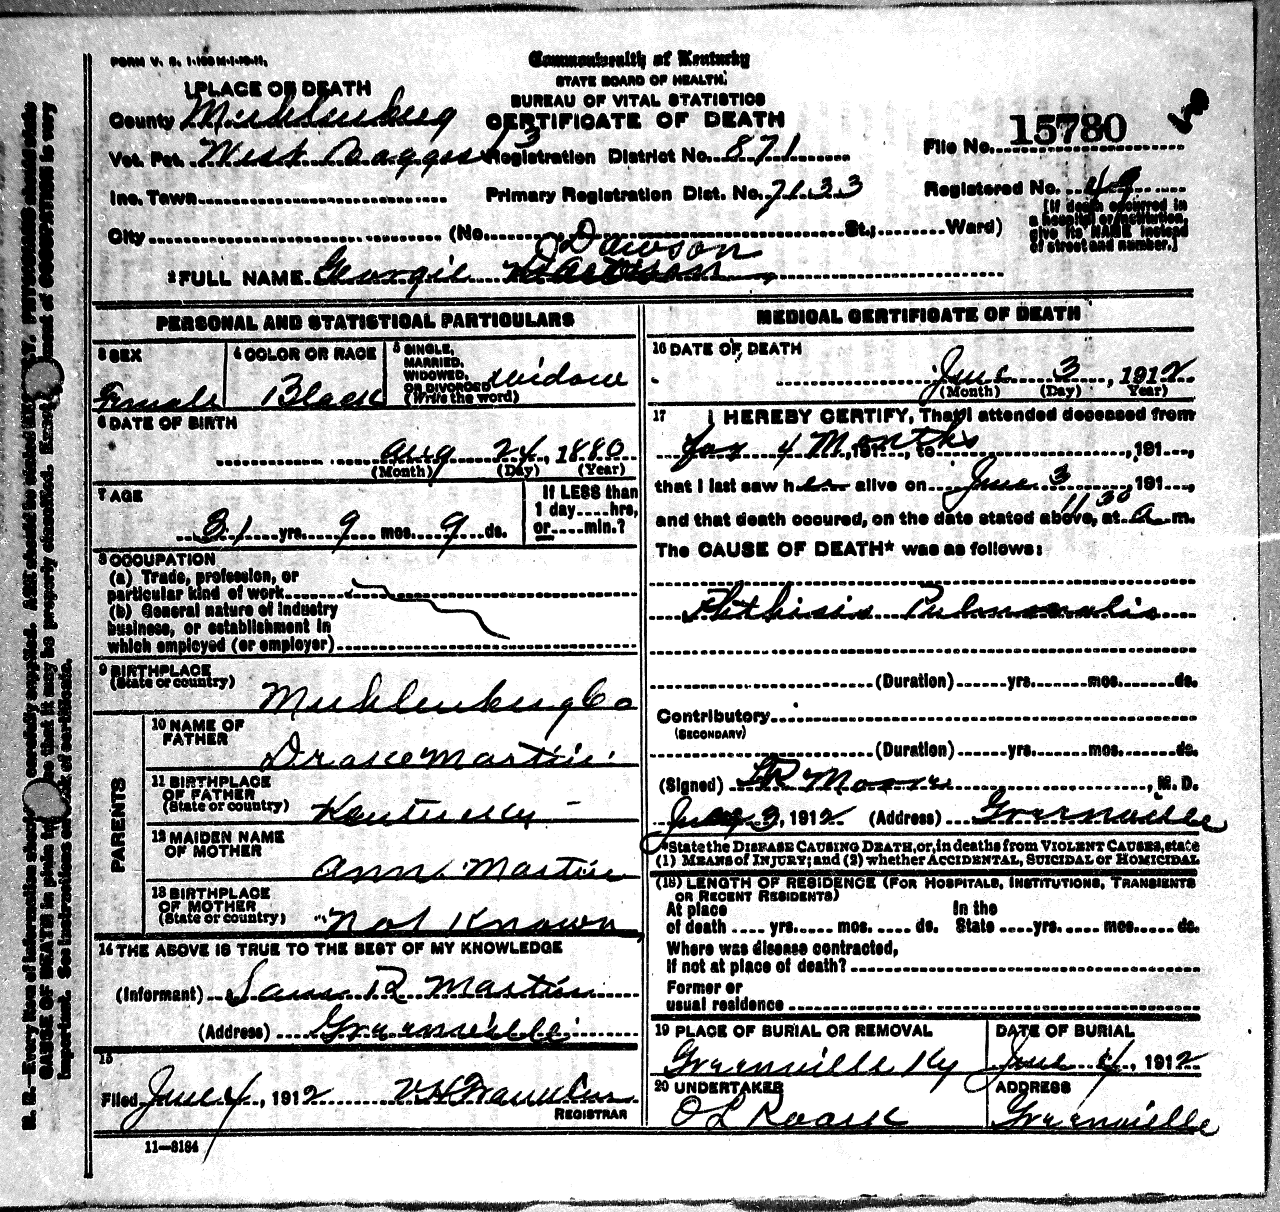 FORM V. S. 1-100M-1-10-11.
Commonwealth of Kentucky
STATE BOARD OF HEALTH.
BUREAU OF VITAL STATISTICS
CERTIFICATE OF DEATH
1 PLACE OF DEATH
County Muhlenburg
Vot. Pct. West 3 Registration District No. 871
File No. 15780
Inc. Town Primary Registration Dist. No. 7133
Registered No. 49
City (No. St.; Ward)
[If death occurred in
a hospital or institution,
give its NAME instead
of street and number.]
Dawson
2 FULL NAME Georgie
PERSONAL AND STATISTICAL PARTICULARS
3 SEX
Female
4 COLOR OR RACE
Black
5 SINGLE,
MARRIED,
WIDOWED,
OR DIVORCED
(Write the word)
widow
6 DATE OF BIRTH
Aug 24, 1880
(Month) (Day) (Year)
7 AGE
31 yrs. 9 mos. 9 ds.
If LESS than
1 day....hrs,
or....min.?
8 OCCUPATION
(a) Trade, profession, or
particular kind of work
(b) General nature of industry
business, or establishment in
which employed (or employer)
9 BIRTHPLACE
(State or country)
Muhlenburg Co
PARENTS
10 NAME OF
FATHER
Drake Martin
11 BIRTHPLACE
OF FATHER
(State or country)
Kentucky
12 MAIDEN NAME
OF MOTHER
Ann Martin
13 BIRTHPLACE
OF MOTHER
(State or country)
Not Known
14 THE ABOVE IS TRUE TO THE BEST OF MY KNOWLEDGE
(Informant) Sam R Martin
(Address) Greenville
15
Filed June 4, 1912 REGISTRAR
11—3184
MEDICAL CERTIFICATE OF DEATH
16 DATE OF DEATH
June 3, 1912
(Month) (Day) Year)
17 I HEREBY CERTIFY, That I attended deceased from
for 4 Months, 191 , to , 191 ,
that I last saw her alive on June 3, 191 ,
and that death occured, on the date stated above, at 11 30 a m.
The CAUSE OF DEATH* was as follows:
Phthisis Pulmonalis
(Duration) yrs. mos. ds.
Contributory
(SECONDARY)
(Duration) yrs. mos. ds.
(Signed) Moore, M. D.
3, 1912 (Address) Greenville
*State the DISEASE CAUSING DEATH, or, in deaths from VIOLENT CAUSES, state
(1) MEANS of INJURY; and (2) whether ACCIDENTAL, SUICIDAL or HOMICIDAL
(18) LENGTH OF RESIDENCE (FOR HOSPITALS, INSTITUTIONS, TRANSIENTS
OR RECENT RESIDENTS)
At place In the
of death .... yrs. .... mos. .... ds. State .... yrs. .... mos. .... ds.
Where was disease contracted,
If not at place of death?
Former or
usual residence
19 PLACE OF BURIAL OR REMOVAL
Greenville Ky
DATE OF BURIAL
June 4, 1912
20 UNDERTAKER
O L Roark
ADDRESS
Greenville